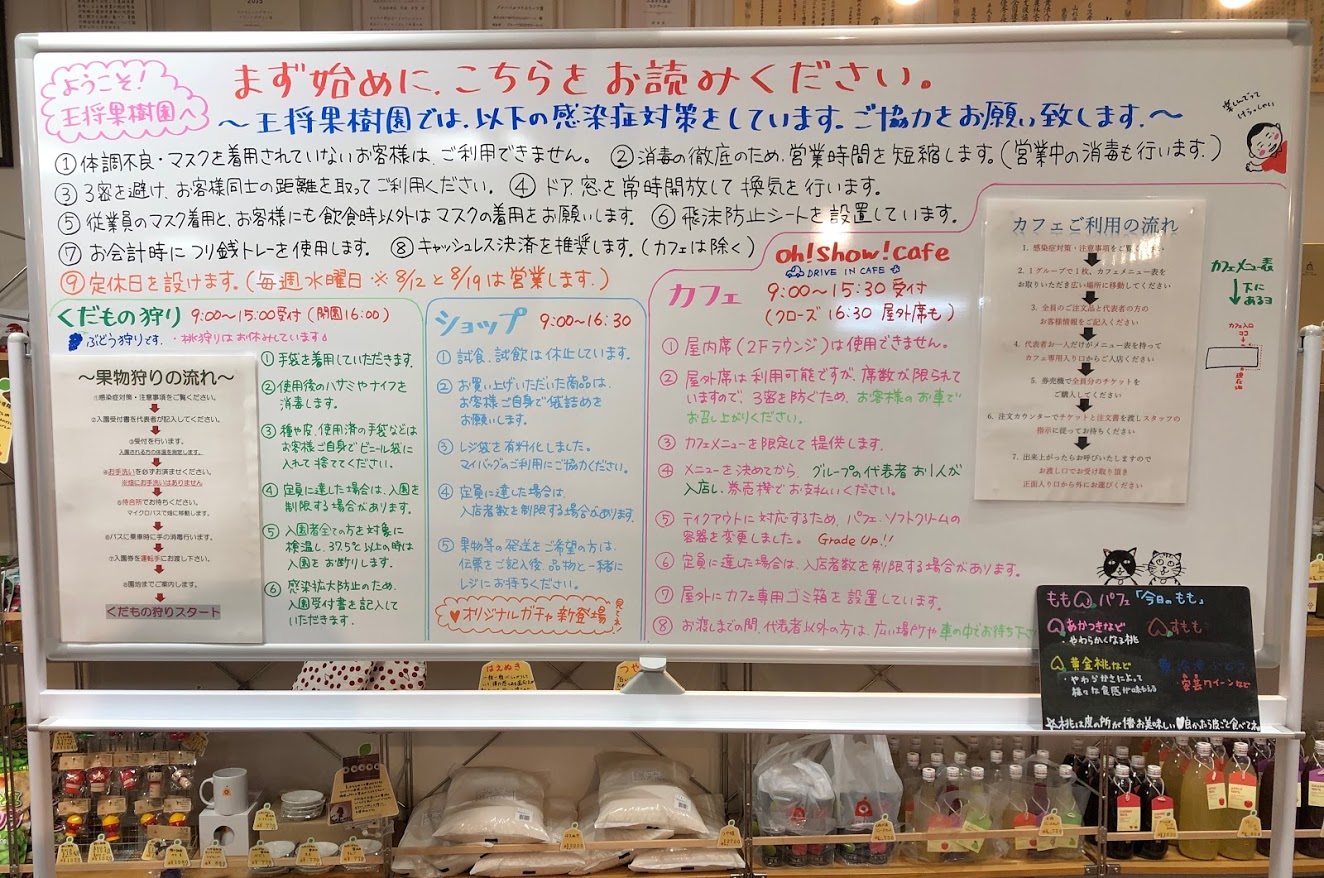 ようこそ!
王将果樹園へ
まず始めに、こちらをお読みください。
～王将果樹園では、以下の感染症対策をしています。ご協力をお願い致します。～
①体調不良・マスクを着用されていないお客様は、ご利用できません。 ②消毒の徹底のため、営業時間を短縮します。(営業中の消毒も行います。)
③3密を避け、お客様同士の距離を取ってご利用ください。 ④ドア、窓を常時開放して換気を行います。
⑤従業員のマスク着用と、お客様にも飲食時以外はマスクの着用をお願いします。 ⑥飛沫防止シートを設置しています。
⑦お会計時につり銭トレーを使用します。 ⑧キャッシュレス決済を推奨します。(カフェは除く)
⑨定休日を設けます。(毎週水曜日 ※8/12と8/19は営業します。)
くだもの狩り 9:00～15:00受付(閉園16:00)
ぶどう狩りです。・桃狩りはお休みしています
～果物狩りの流れ～
①感染症対策・注意事項をご覧ください。
②入園受付書を代表者が記入してください。
③受付を行います。
入園される方の体温を測定します。
④お手洗いを必ずお済ませください。
※畑にお手洗いはありません
⑤待合所でお待ちください。
マイクロバスで畑に移動します。
⑥バスに乗車時に手の消毒行います。
⑦入園券を運転手にお渡し下さい。
⑧園地までご案内します。
くだもの狩りスタート
①手袋を着用していただきます。
②使用後のハサミやナイフを
消毒します。
③種や皮、使用済の手袋などは
お客様ご自身でビニール袋に
入れて捨ててください。
④定員に達した場合は、入園を
制限する場合があります。
⑤入園者全ての方を対象に
検温し、37.5℃以上の時は
入園をお断りします。
⑥感染拡大防止のため、
入園受付書を記入して
いただきます。
ショップ 9:00～16:30
①試食、試飲は休止しています。
②お買い上げいただいた商品は、
お客様ご自身で袋詰めを
お願いします。
③レジ袋を有料化しました。
マイバッグのご利用にご協力ください。
④定員に達した場合は、
入店者数を制限する場合があります。
⑤果物等の発送をご希望の方は、
伝票をご記入後、品物と一緒に
レジにお持ちください。
♥オリジナルガチャ新登場
oh!show!cafe
DRIVE IN CAFE
カフェ 9:00～15:30受付
(クローズ 16:30 屋外席も)
①屋内席(2Fラウンジ)は使用できません。
②屋外席は利用可能ですが、席数が限られて
いますので、3密を防ぐため、お客様のお車で
お召し上がりください。
③カフェメニューを限定して提供します。
④メニューを決めてから、グループの代表者お1人が
入店し、券売機でお支払いください。
⑤テイクアウトに対応するため、パフェ・ソフトクリームの
容器を変更しました。 Grade Up!!
⑥定員に達した場合は、入店者数を制限する場合があります。
⑦屋外にカフェ専用ゴミ箱を設置しています。
⑧お渡しまでの間、代表者以外の方は、広い場所や車の中でお待ち下さ
カフェご利用の流れ
1. 感染症対策・注意事項をご覧ください
2. 1グループで1枚、カフェメニュー表を
お取りいただき広い場所に移動してください
3. 全員のご注文品と代表者の方の
お客様情報をご記入ください
4. 代表者お一人だけがメニュー表を持って
カフェ専用入り口からご入店ください
5. 券売機で全員分のチケットを
ご購入してください
6. 注文カウンターでチケットと注文書を渡しスタッフの
指示に従ってお待ちください
7. 出来上がったらお呼びいたしますので
お渡し口でお受け取り頂き
正面入り口から外にお運びください
カフェメニュー表
↓下に
あるヨ
カフェ入口
ココ
もも パフェ「今日のもも」
あかつきなど
・やわらかくなる桃
すもも
黄金桃など
・やわらかさによって
様々な食感が味わえる
安芸クイーンなど
☆桃は皮の所が1番お美味しい♥良かったら皮ごと食べてネ
はえぬき
つや